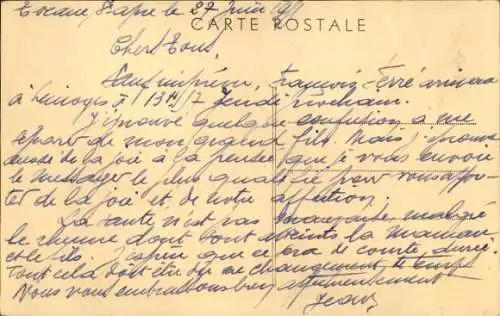 le 27 Juin
CARTE POSTALE
Chers Tous,
Sauf imprévu, François-Ferré arrivera
à Limoges à 13H17 Jeudi prochain.
J'éprouve quelque confusion à me
séparer de mon grand fils. Mais j'éprouve
aussi de la joie à la pensée que je vous envoie
le messager le plus qualifié pour vous appor-
ter de la joie et de notre affection.
La santé n'est pas mauvaise, malgré
le rhume dont sont atteints la maman
et le fils. J'espère que ce sera de courte durée.
Tout cela doit être dû au changement de temps
Nous vous embrassons bien affectueusement
Jean